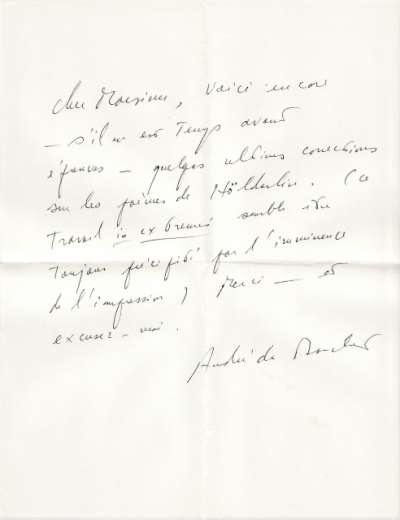 Cher Monsieur, voici encore
– s'il en est temps avant
épreuves – quelques ultimes corrections
sur les poèmes de Hölderlin. (Ce
travail in extremis semble être
toujours précipité par l'imminence
de l'impression) Merci – et
excusez-moi.
André du Bouchet